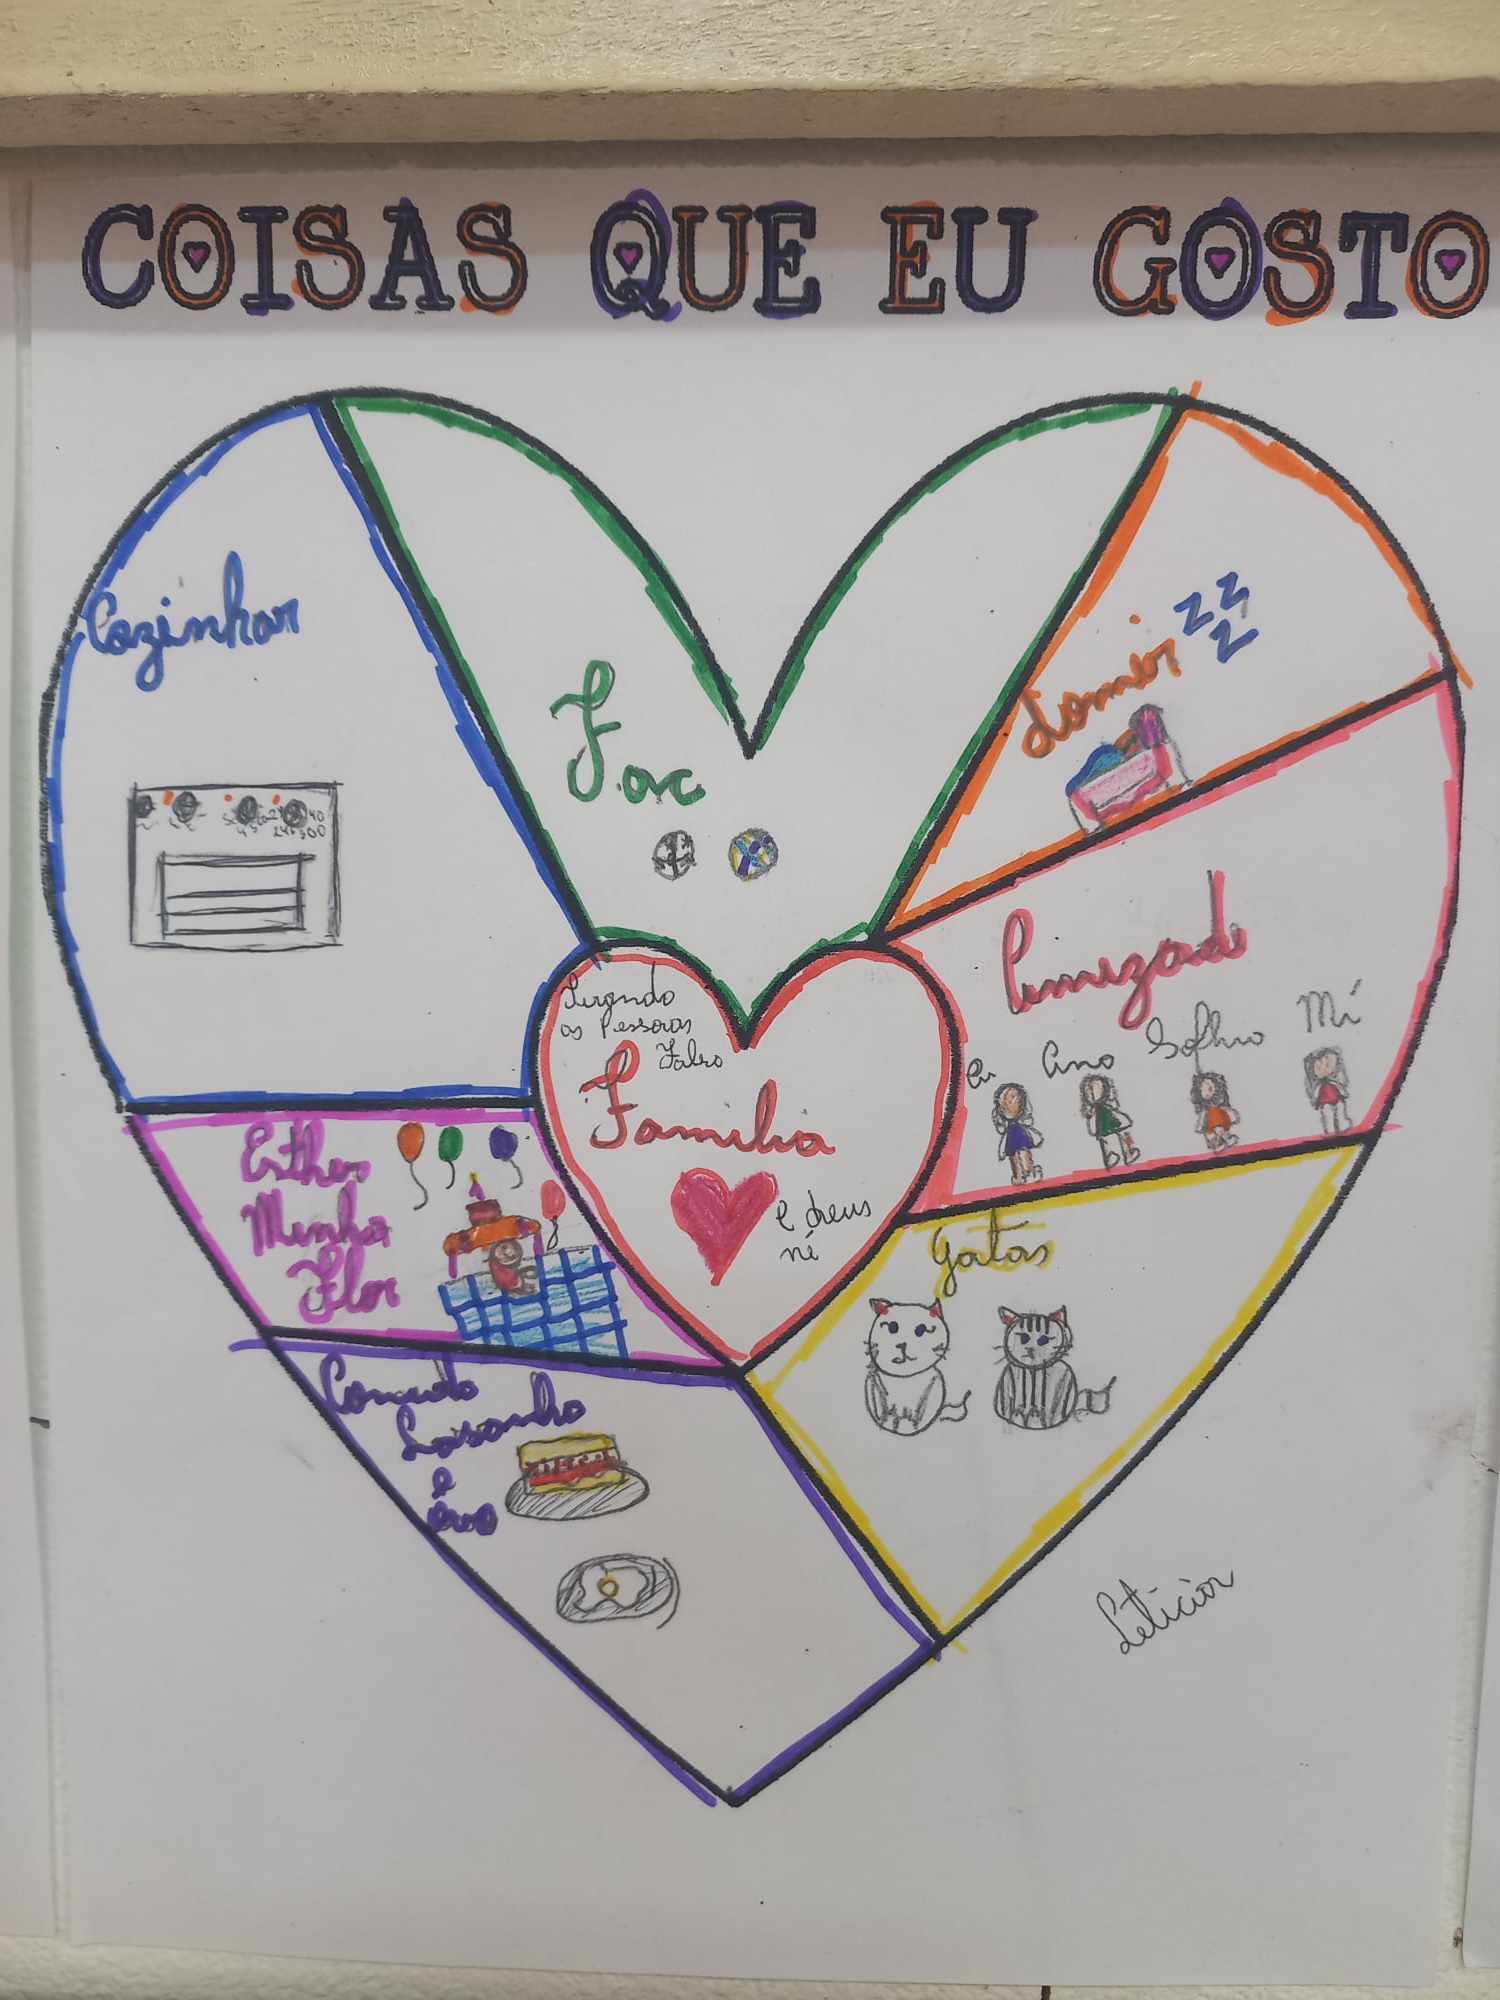 COISAS QUE EU GOSTO
Cozinhar
Dormir zzz
Amizade
Eu Ana Sofhia Mí
as Pessoas
Falsa
Família
e deus
né
Esther
Minha
Flor
Gatos
Comida
Lasanha
e
ovo
Letícia